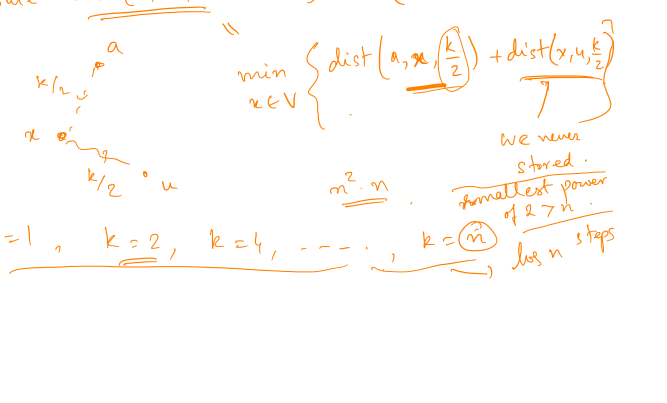 a
k/2
x
k/2
u
min x∈V { dist(a, x, k/2) + dist(x, u, k/2) }
we never
stored.
n². n
smallest power
of 2 > n.
=1, k=2, k=4, ----., k=n̂
log n steps